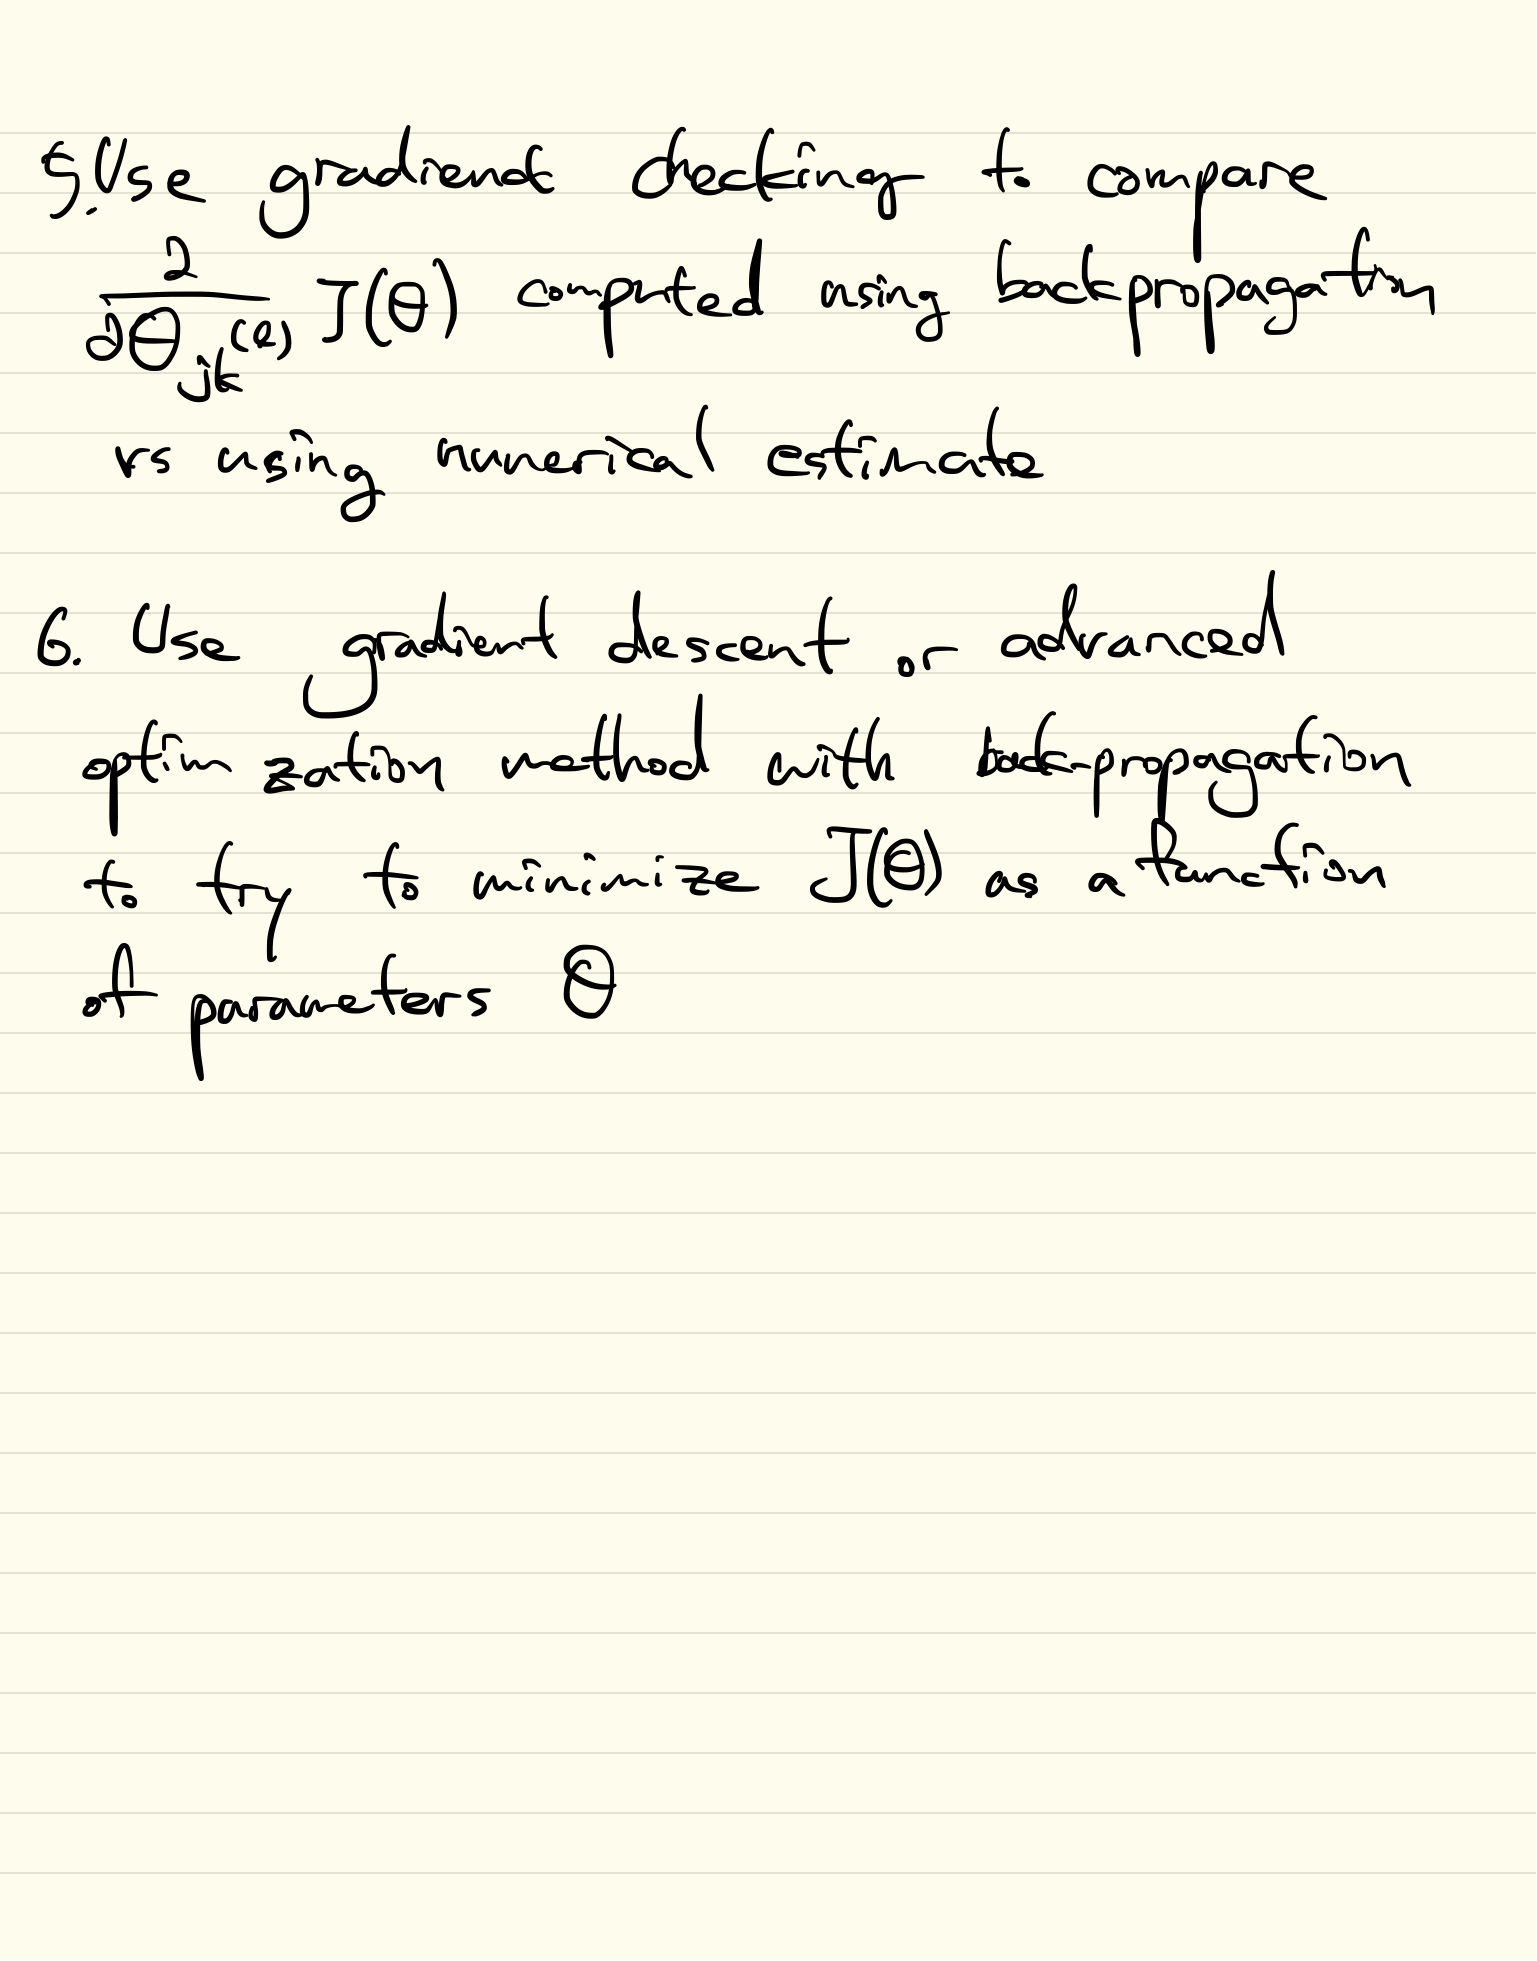 5. Use gradient checking to compare
∂/∂Θ_jk^(l) J(Θ) computed using backpropagation
vs using numerical estimate
6. Use gradient descent or advanced
optim zation method with backpropagation
to try to minimize J(Θ) as a function
of parameters Θ